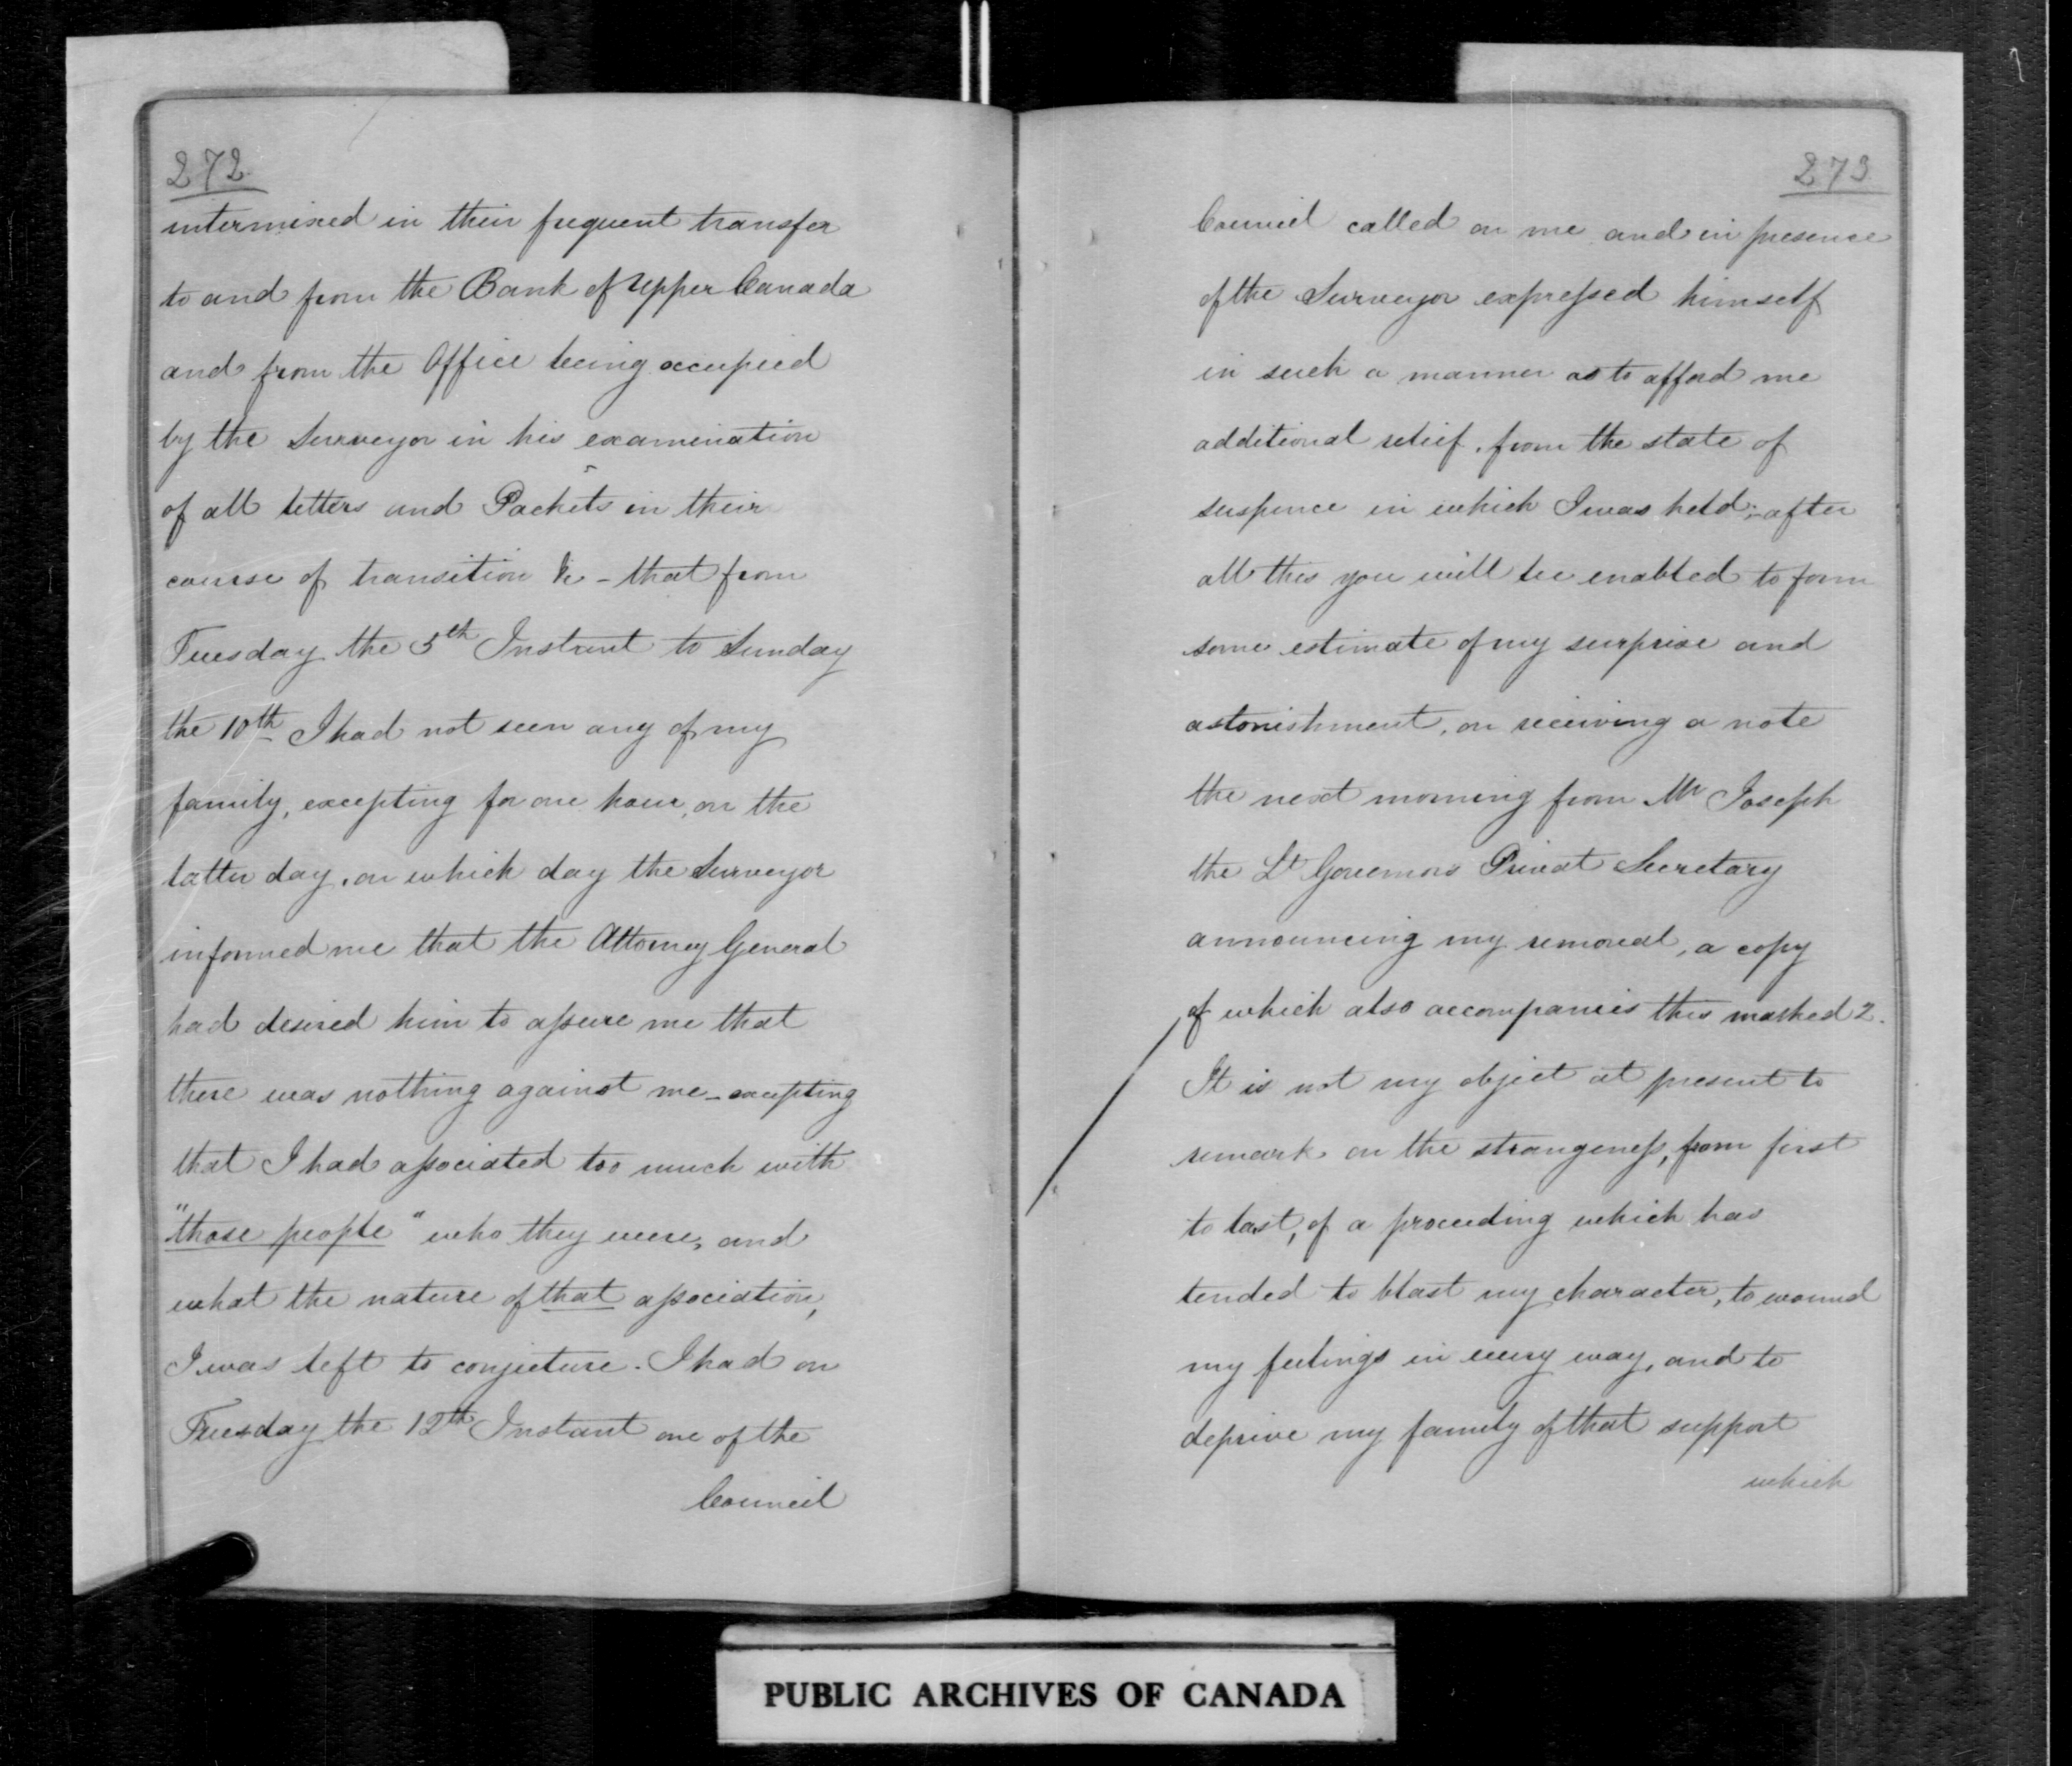 272
intermixed in their frequent transfer
to and from the Bank of Upper Canada
and from the Office being occupied
by the Surveyor in his examination
of all letters and Packets in their
course of transition &c - that from
Tuesday the 5th Instant to Sunday
the 10th I had not seen any of my
family, excepting for one hour, on the
latter day, on which day the Surveyor
informed me that the Attorney General
had desired him to assure me that
there was nothing against me - excepting
that I had associated too much with
"those people" who they were, and
what the nature of that association,
I was left to conjecture. I had on
Tuesday the 12th Instant one of the
Council
273
Council called on me and in presence
of the Surveyor expressed himself
in such a manner as to afford me
additional relief, from the state of
suspence in which I was held; - after
all this you will be enabled to form
some estimate of my surprise and
astonishment, on receiving a note
the next morning from Mr Joseph
the Lt Governors Privat Secretary
announcing my removal, a copy
of which also accompanies this marked 2.
It is not my object at present to
remark on the strangeness, from first
to last, of a proceeding which has
tended to blast my character, to wound
my feelings in every way, and to
deprive my family of that support
which
PUBLIC ARCHIVES OF CANADA